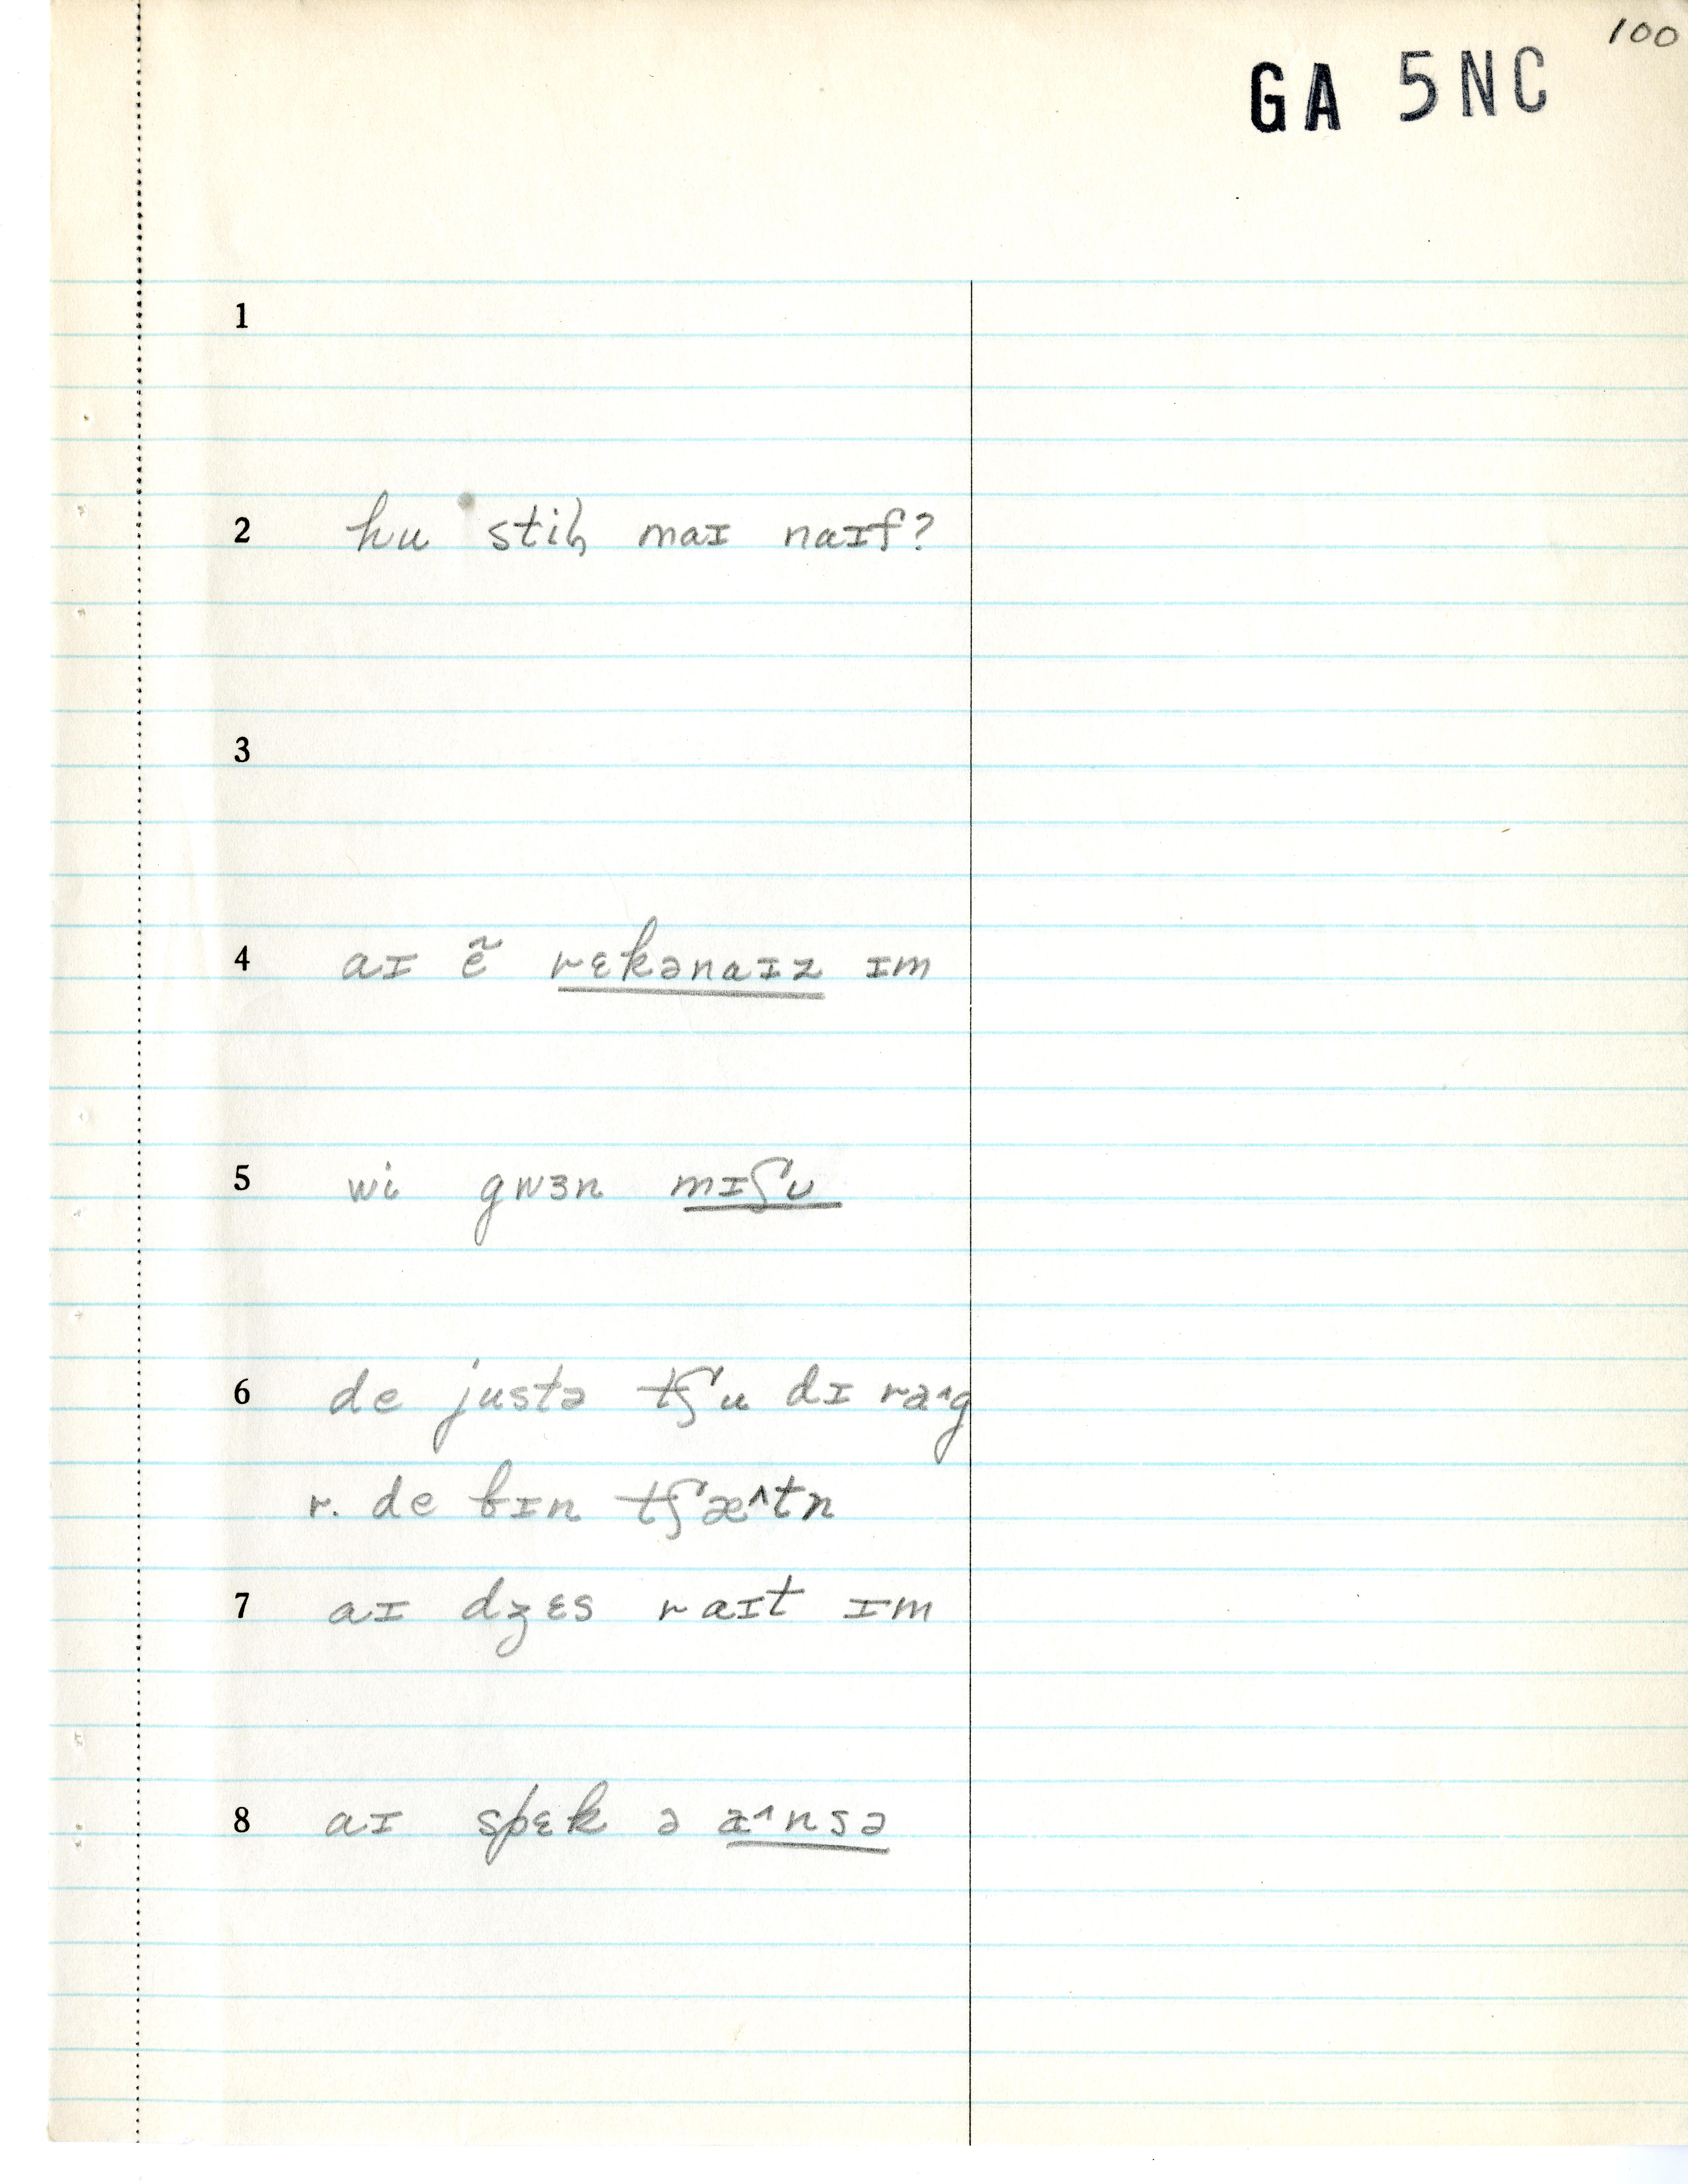 100
GA 5NC
1
2 hu stiḷ maɪ naɪf?
3
4 aɪ ẽ rɛkənaɪz ɪm
5 wi gwɜn mɪʃʊ
6 de justə tʃu dɪ ra^g
r. de bɪn tʃæ^tn
7 aɪ dʒɛs raɪt ɪm
8 aɪ spɛk ə æ^nsə